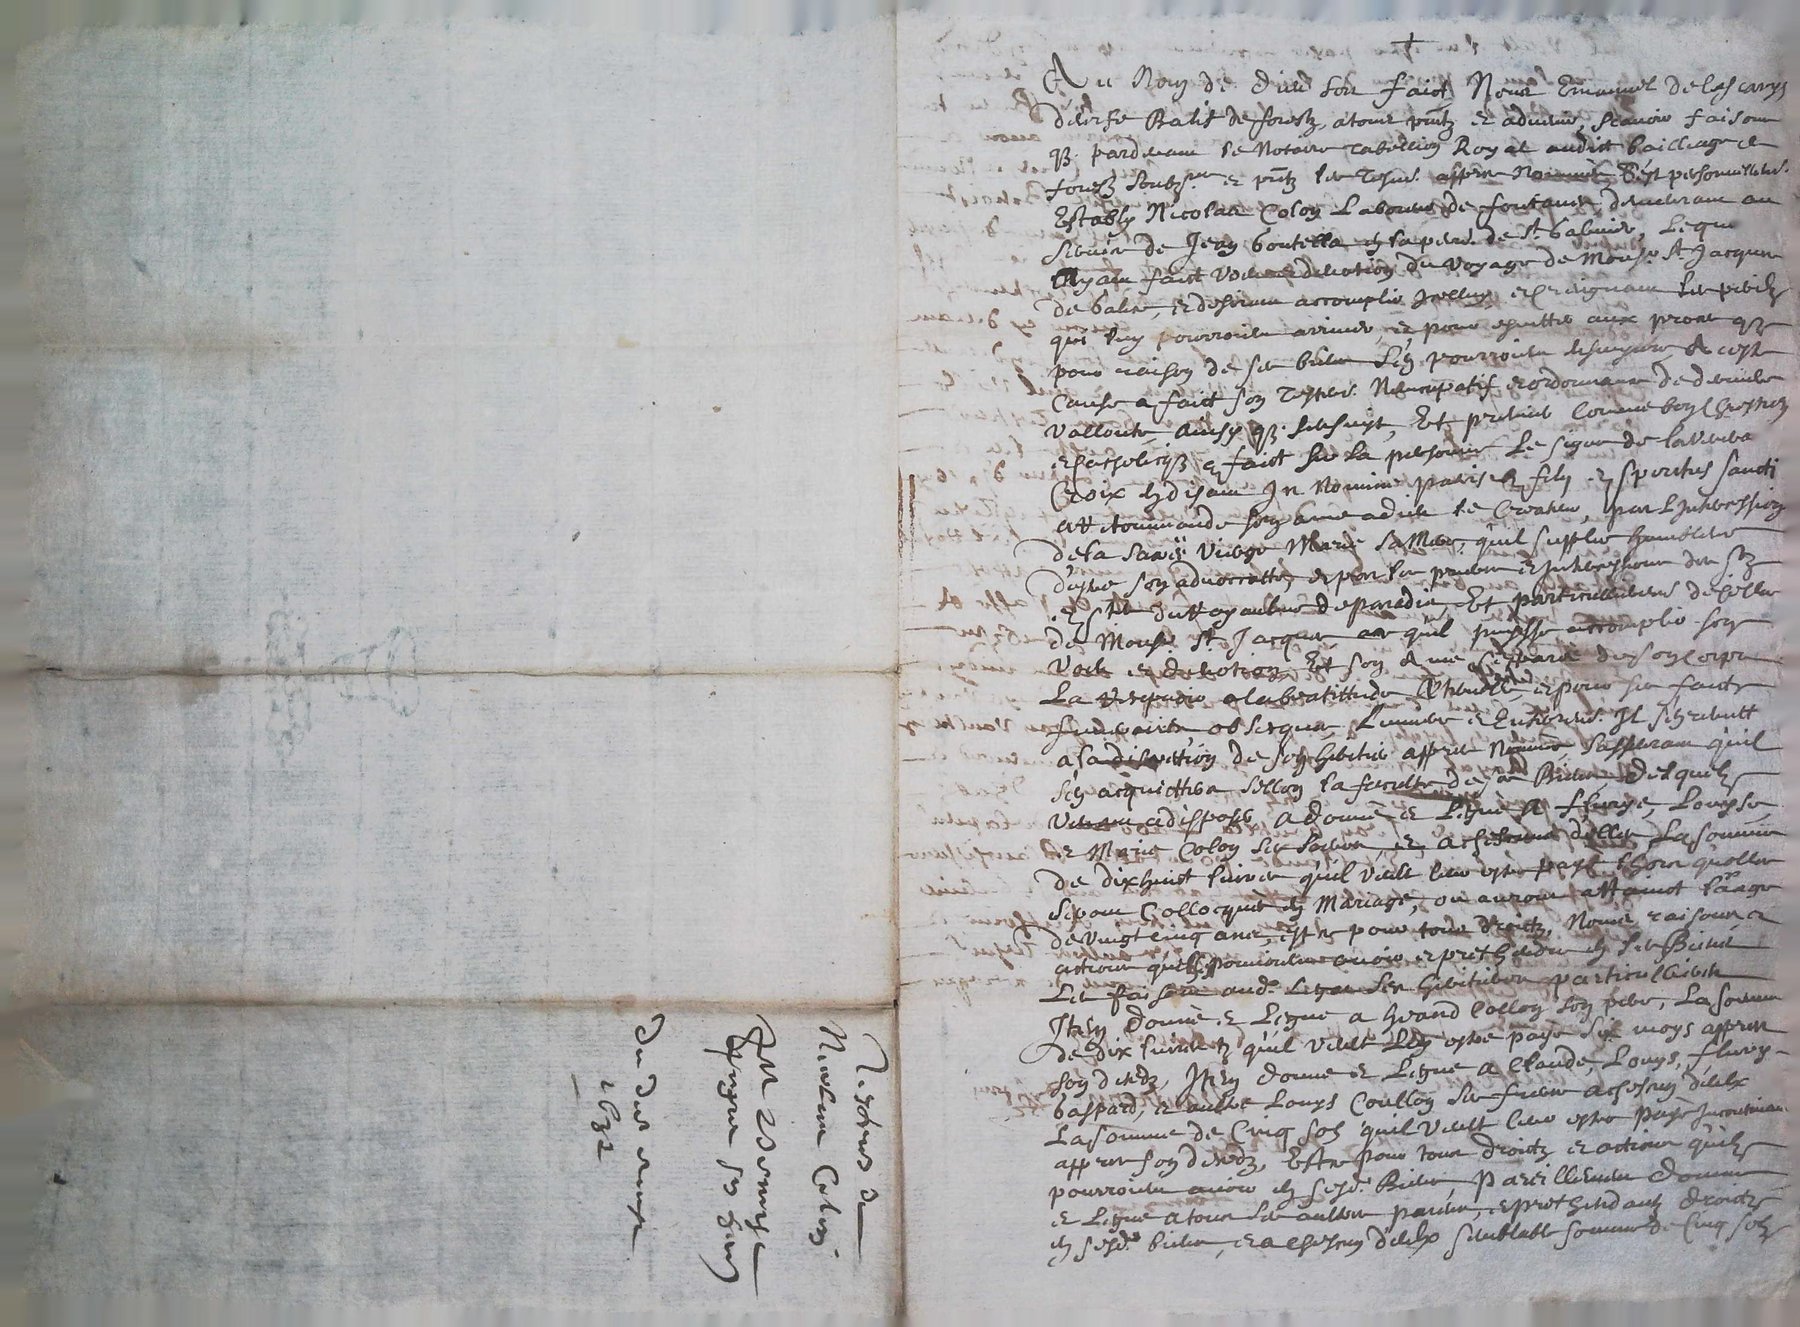 Au Nom de Dieu soit faict, Nous Emanuel de lascarys
durfe Balif de forestz, atous pntz et advenir, scavoir faisons
q. pardevant le Notaire tabellion Royal audict bailliage de
forestz soubz.ne et pntz les tesm. appres Nommes C'est personnellem.
Estably Nicolas Coloy Laboureur de fontanes, demeurant au
service de Jean bontella en la parr. de St Galmier, Lequel
Ayant faict Veu et devotion du voyage de Monsr. St Jacques
de Galice, et desirant accomplir Icelluy et Creignant les perilz
qui luy pourroient arriver, et pour esvitter aux proces q.
pour raison de ses biens s'en pourroient ensuyvre, A ceste
Cause a faict son testem. Nuncupatif et ordonnance de derniere
vollonte, Ainsy q. s'ensuyt, Et premier Comme bon Chrestien
et Catholicq. a faict sur la personne le signe de la vraye
Croix en disant In Nomine patris et filij et spiritus sancti
a recommande son ame a dieu le Createur, par L'Intercession
de la saincte Vierge Marie sa Mere, qu'il supplie humblem.
d'estre son advoccatte, et par les prieres et Intercessions des sz
et stes du Royaulme de paradis, Et particullierem. de celles
de Monsr. St Jacques qu'il puisse accomplir son
Veu et devotion, Et son Ame separee de son corps
a la beatittude Eternelle, et pour ses faictz
funeraires, obseques, Lumiere et Enterrem. Il s'en remett
a sa discretion de son heritier appres Nomme s'asseurant qu'il
s'en acquittera sellon la faculte de ses Biens, Desquelz
Venant a disposer a donne et Legue A fleurye, Louyse
et Marie Coloy ses soeurs, et a chescune d'elles La somme
de dixhuict livres qu'il veult leur estre paye lhors quelles
seront Collocquees en Mariage, ou auront attainct l'aage
de vingt cinq ans, et ce pour tous droictz, Noms, raisons et
actions qu'elles pourroient avoir et prethendre en ses Biens
Les faisant aud. Legat ses heritieres particullieres
Item donne et Legue a heand Colloy son pere, La somme
de dix livres qu'il veult Luy estre paye six moys appres
son deces, Item donne et Legue a Claude, Louys, fleury
Gaspard, et aultre Louys Coulloy ses freres a chescun d'eulx
La somme de Cinq solz qu'il veult leur estre paye Incontinant
appres son decedz, Et ce pour tous droictz et actions qu'ilz
pourroient avoir en sesd. Biens Pareillement donne
et Legue a tous ses aultres parens, et prethendantz droictz
en sesd. biens, et a chescun d'eulx semblable somme de Cinq solz
Testemt de
Nicolas Coloy
1632